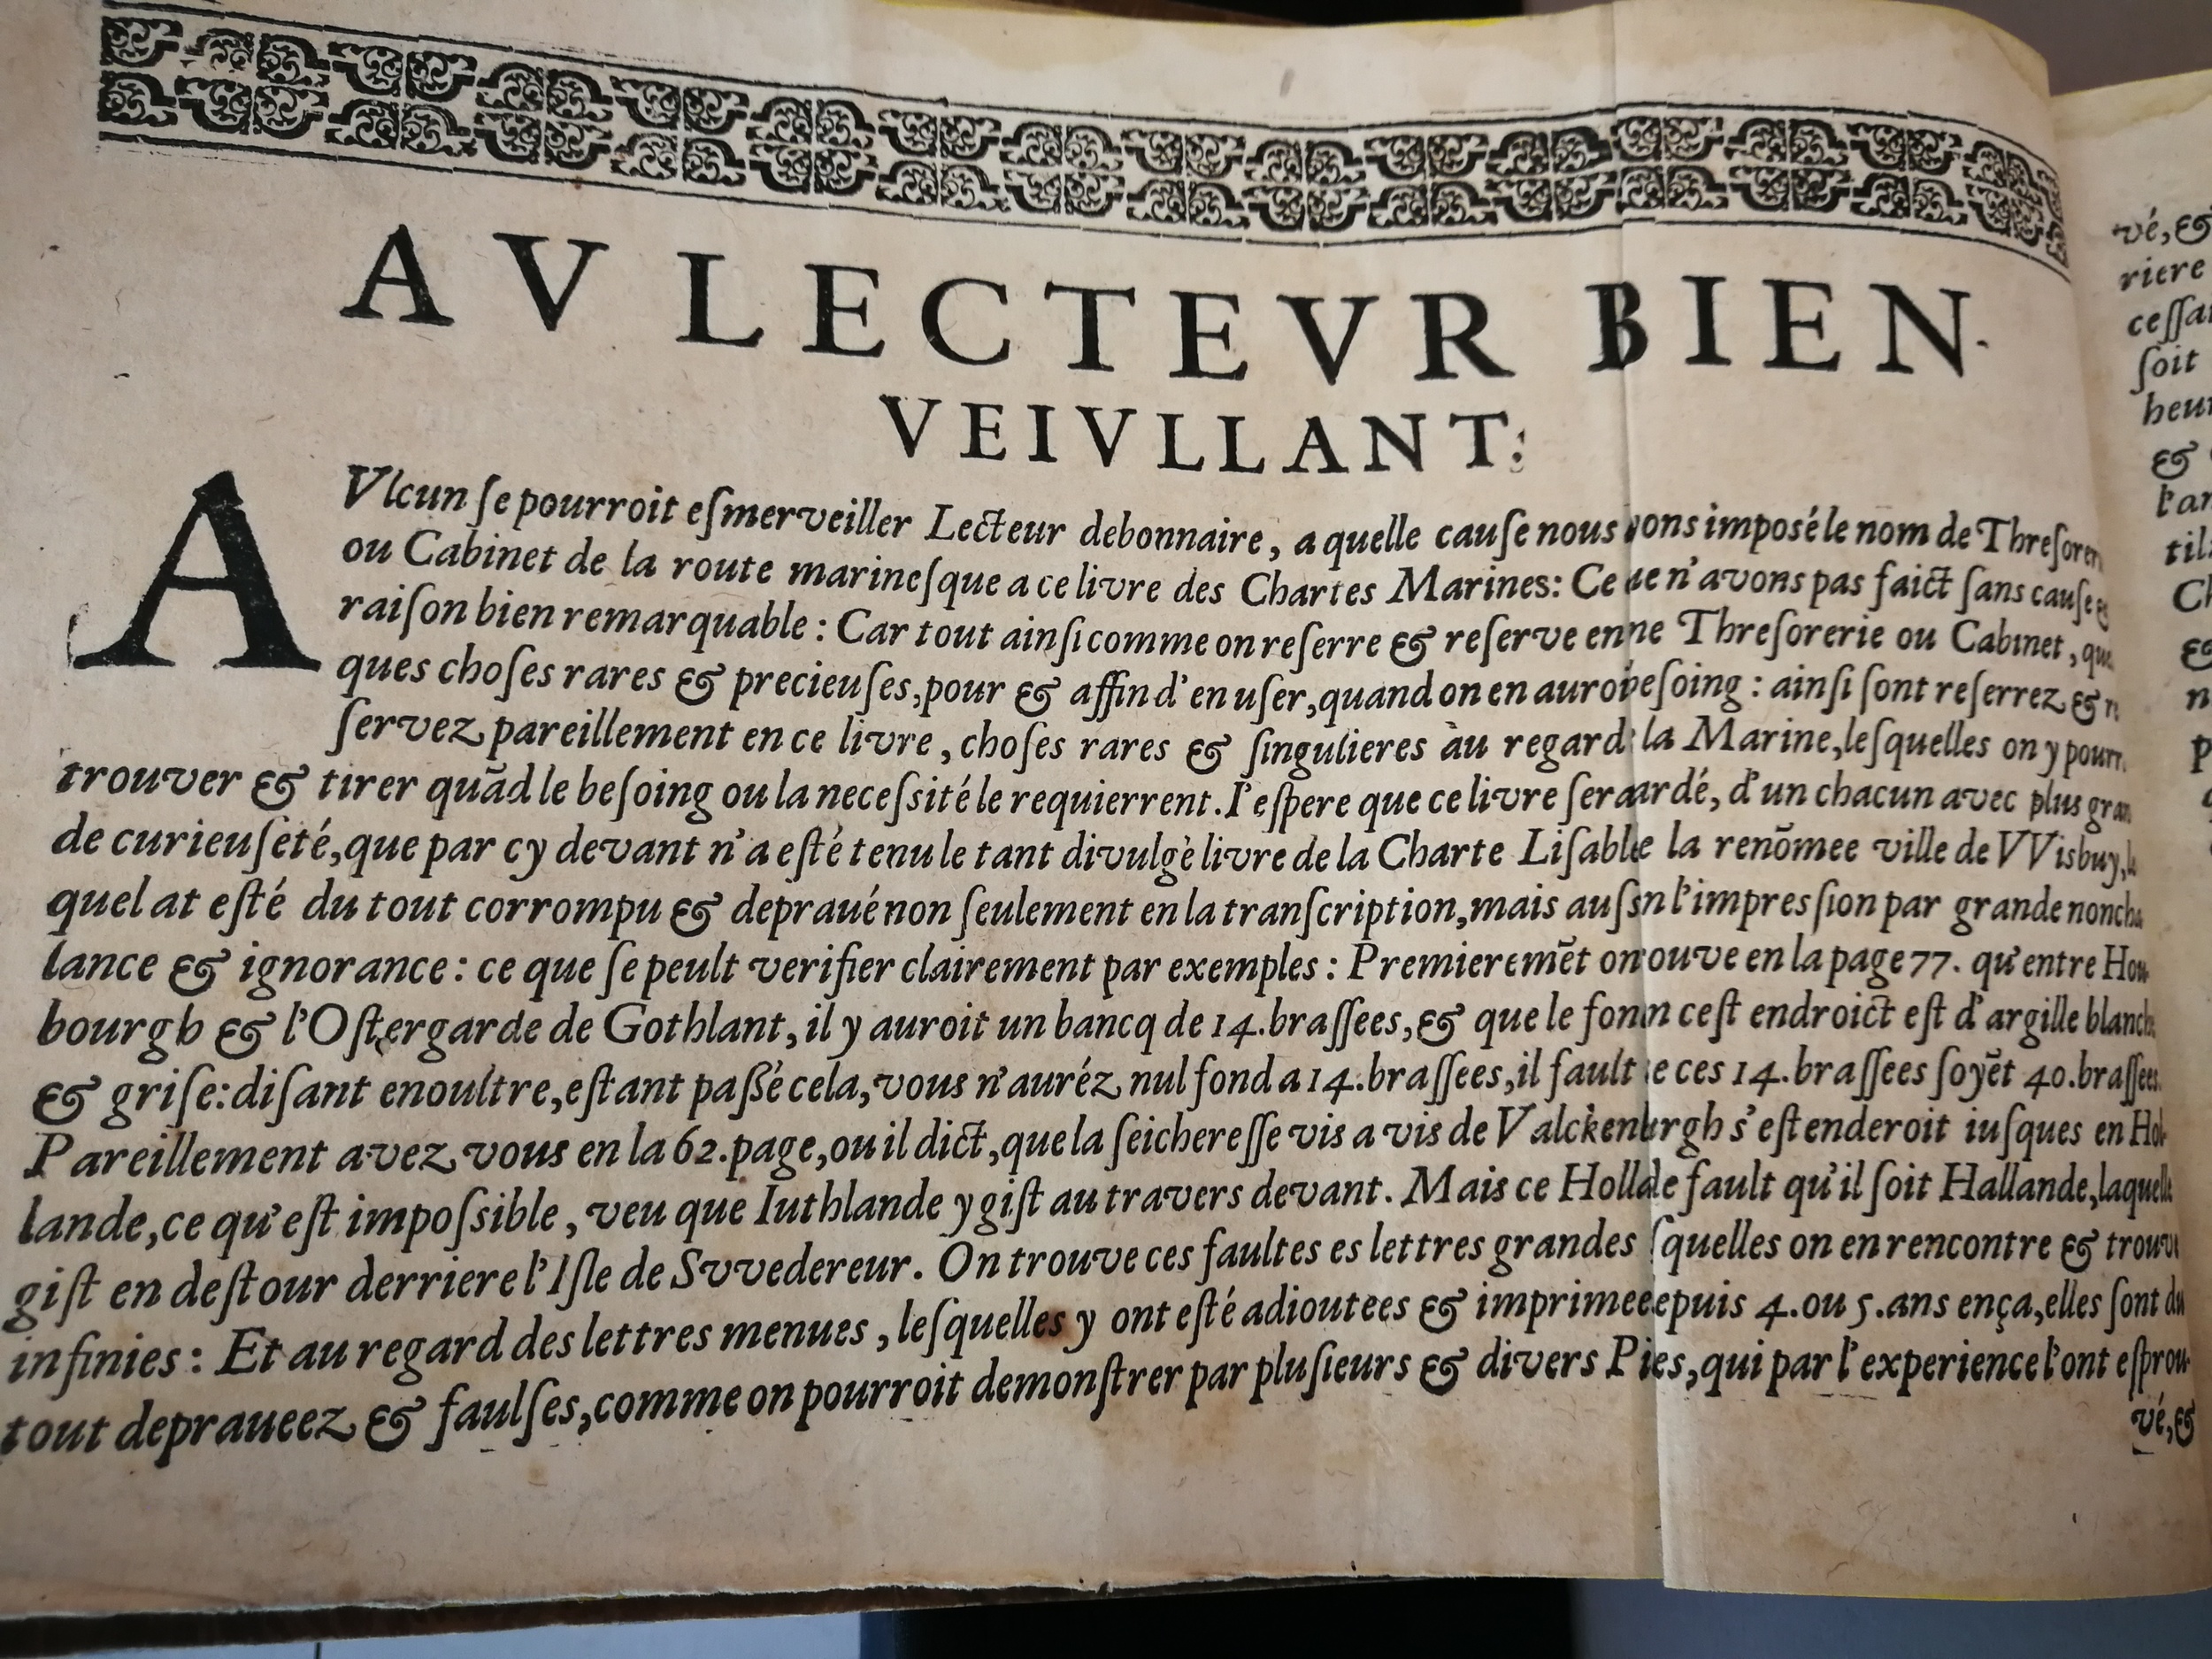 AV LECTEVR BIEN-
VEIVLLANT:
AVlcun ſe pourroit eſmerveiller Lecteur debonnaire, a quelle cauſe nous imposé le nom de
ou Cabinet de la route marineſque a ce livre des Chartes Marines: Ce n'avons pas faict ſans cauſe &
raiſon bien remarquable: Car tout ainſi comme on reſerre & reſerve en Threſorerie ou Cabinet,
ques choſes rares & precieuſes, pour & affin d'en uſer, quand on en beſoing: ainſi ſont reſerrez &
ſervez pareillement en ce livre, choſes rares & ſingulieres au regard la Marine, leſquelles on y
trouver & tirer quãd le beſoing ou la neceſsité le requierrent. I'eſpere que ce livre d'un chacun avec plus
de curieuſeté, que par cy devant n'a eſté tenu le tant divulgè livre de la Charte la renõmee ville de VVisbuy,
quel at eſté du tout corrompu & depraué non ſeulement en la tranſcription, mais l'impreſsion par grande
lance & ignorance: ce que ſe peult verifier clairement par exemples: Premieremẽt on en la page 77. qu'entre
bourgh & l'Oſtergarde de Gothlant, il y auroit un bancq de 14. braſſees, & que le ceſt endroict eſt d'argille
& griſe: diſant enoultre, eſtant paßé cela, vous n'auréz nul fond a 14. braſſees, il fault ces 14. braſſees ſoyẽt 40. braſſees.
Pareillement avez vous en la 62. page, ou il dict, que la ſeichereſſe vis a vis de s'eſtenderoit iuſques en Hol-
lande, ce qu'eſt impoſsible, veu que Iuthlande y giſt au travers devant. Mais ce fault qu'il ſoit Hallande, laquelle
giſt en deſtour derriere l'Iſle de Svvedereur. On trouve ces faultes es lettres grandes on en rencontre &
infinies: Et au regard des lettres menues, leſquelles y ont eſté adioutees & 4. ou 5. ans ença, elles ſont du
tout depraueez & faulſes, comme on pourroit demonſtrer par pluſieurs & divers qui par l'experience l'ont eſprou-
vé, &
vé, &
riere
ſoit
&